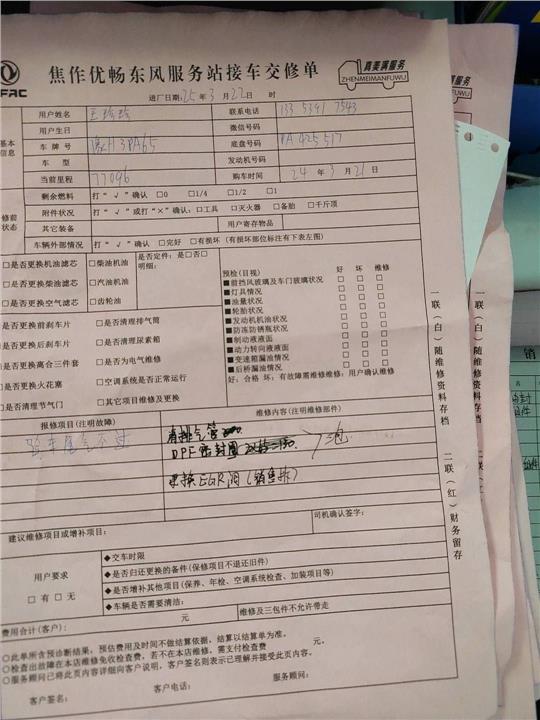 FAC
焦作优畅东风服务站接车交修单
真美满服务
ZHENMEIMANFUWU
进厂日期:25年3月22日 时
基本信息
用户姓名 联系电话
用户生日 微信号码
车牌号 豫H3PA65 底盘号码 PA425517
车型 发动机号码
当前里程 77096 购车时间 24年3月21日
修前状态
剩余燃料 打“√”确认 □0 □1/4 □1/2 □1
附件状况 打“√”或打“×”确认:□工具 □灭火器 □备胎 □千斤顶
其它装备 用户寄存物品
车辆外部情况 打“√”确认 □完好 □有损坏(有损坏部位标注有下表左图)
□是否更换机油滤芯 □柴油机油 是否定件:是□否□
明细:
□是否更换柴油滤芯 □汽油机油
□是否更换空气滤芯 □齿轮油
□是否更换前刹车片 □是否清理排气筒
□是否更换后刹车片 □是否清理尿素箱
□是否更换离合三件套 □是否为电气维修
□是否更换火花塞 □空调系统是否正常运行
□是否清理节气门 □其它项目修及更换
预检(目视) 好 坏 维修
■前挡风玻璃及车门玻璃状况 □ □ □
■灯具情况 □ □ □
■油量状况 □ □ □
■轮胎状况 □ □ □
■发动机机油状况 □ □ □
■防冻防锈瓶状况 □ □ □
■制动液液面 □ □ □
■动力转向液液面 □ □ □
■变速箱漏油情况 □ □ □
■后桥漏油情况 □ □ □
好:合格 坏:有故障需维修维用:用户确认维修
报修项目(注明故障) 维修内容(注明维修部件)
验车尾气不过
排气管
DPF密封圈
更换EGR阀(销售拆)
建议维修项目或增补项目: 司机确认签字:
用户要求
□有□无
◆交车时限
◆是否归还更换的备件(保修项目不退还旧件)
◆是否增补其他项目(保养、年检、空调系统检查、加装项目等)
◆车辆是否需要清洁:
费用合计(客户): 元 维修及三包件不允许带走
○此单所含预诊断结果,预估费用及时间不做结算依据,结算以结算单为准。
○检查出故障在本店维修免收检查费,若不在本店维修,需支付检查费 元。
○服务顾问已将此页内容详细向客户说明,客户签名则表示已理解并接受此页内容。
客户签名: 客户电话: 服务顾问:
一联(白)随维修资料存档 二联(红)财务留存
真美满服务
ZHENMEIMANFUWU
一联(白)随维修资料存档 二联(红)财务留存
销